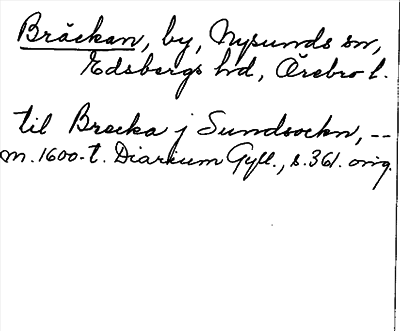 Bräckan, by, Nysunds sn,
Edsbergs hd, Örebro l.
til Brecka j Sundsockn, --
m. 1600-t. Diarium Gyll., s. 361. orig.